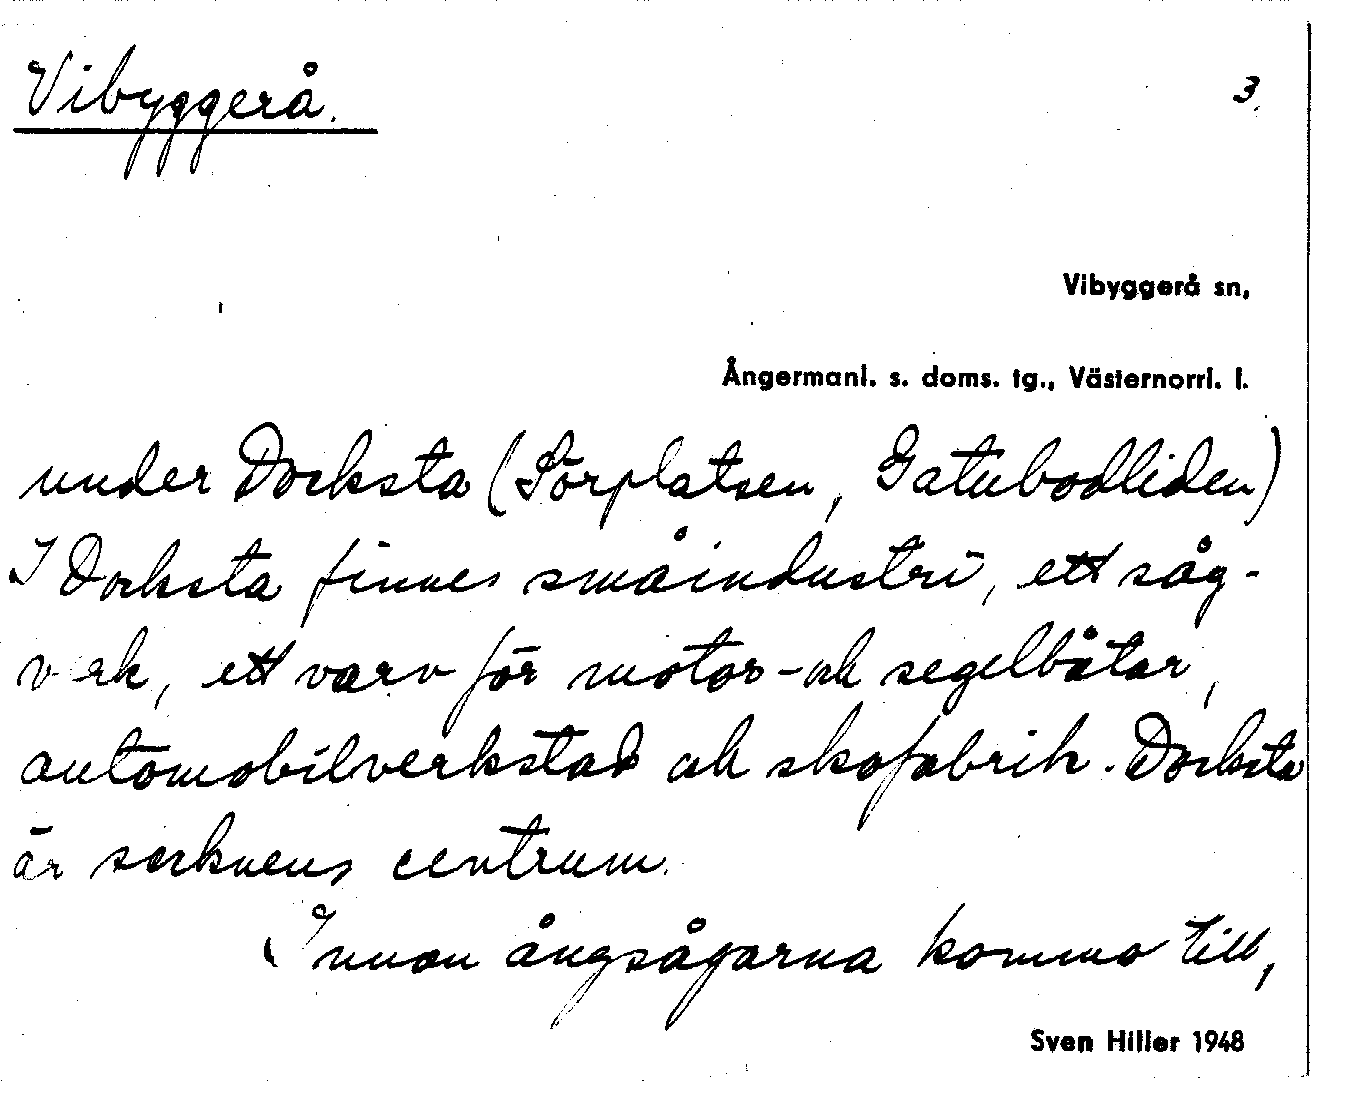 Vibyggerå.
3.
Vibyggerå sn,
Ångermanl. s. doms. tg., Västernorrl. l.
under Docksta (Sörplatsen, Gatubodliden)
I Docksta finnes småindustri, ett såg-
verk, ett varv för motor- och segelbåtar,
automobilverkstad och skofabrik. Docksta
är socknens centrum.
Innan ångsågarna kommo till,
Sven Hiller 1948